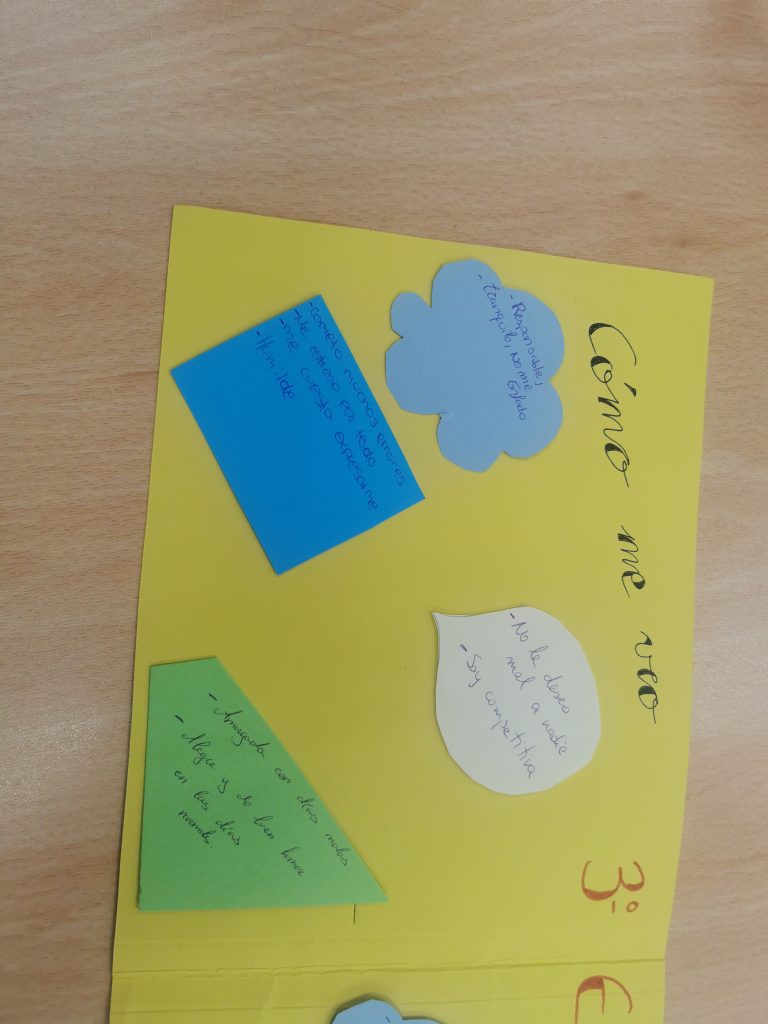 Cómo me veo
3º E
- Responsable,
- tranquilo, No me
enfado
- cometo muchos errores
- Me estreso por todo
- me cuesta expresarme
- Humilde
- No le deseo
mal a nadie
- Soy competitiva
- Amargada con días malos
- Alegre y de buen humor
en los días
normales